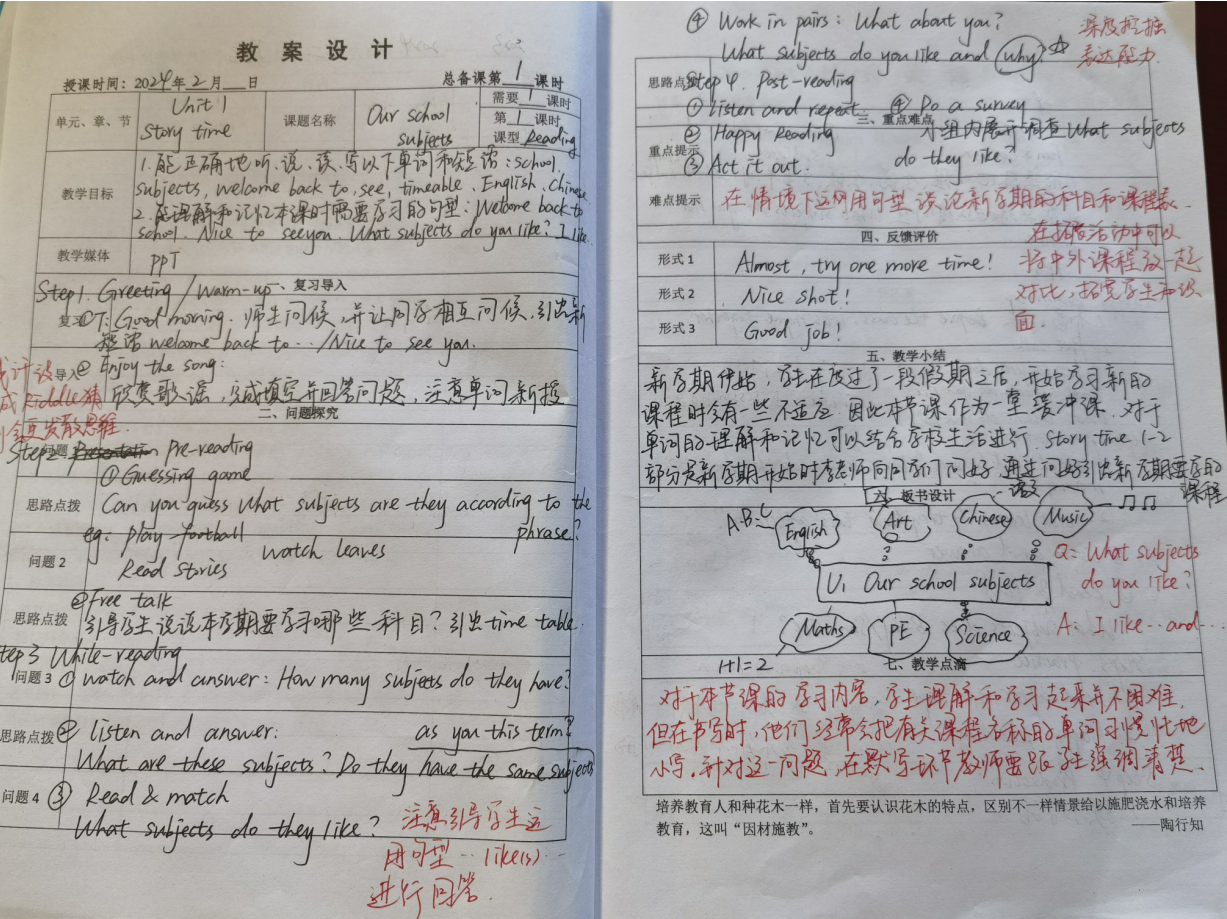 教案设计
授课时间：2024年2月__日
总备课第1课时
单元、章、节
Unit 1
Story time
课题名称
Our school
subjects
需要1课时
第1课时
课型Reading
教学目标
1.能正确地听、说、读、写以下单词和短语：school
subjects, welcome back to, see, timeable、English、Chinese
2.能理解和记忆本课时需要学习的句型：Welcome back to
school. Nice to see you. What subjects do you like? I like
教学媒体
PPT
一、复习导入
Step1. Greeting / Warm-up
复习
①T: Good morning. 师生问候，并让同学相互问候，引出新
短语 welcome back to… / Nice to see you.
导入
② Enjoy the song:
欣赏歌谣，完成填空并回答问题，注意单词新授
成 Riddle 猜
发散思维.
二、问题探究
问题
Step2 Presentation Pre-reading
①Guessing game
思路点拨
Can you guess what subjects are they according to the
phrase?
eg: play football
watch leaves
问题2
Read stories
②Free talk
思路点拨
引导学生说说本学期要学习哪些科目？引出time table.
Step 3 While-reading
问题3
① watch and answer: How many subjects do they have?
思路点拨
② listen and answer:
as you this term?
What are these subjects? Do they have the same subjects
问题4
③ Read & match
What subjects do they like?
注意引导学生运
用句型… like(s)…
进行回答.
④ Work in pairs: What about you?
What subjects do you like and why? ☆
深度挖掘
表达能力
思路点拨
Step 4. Post-reading
① Listen and repeat.
④ Do a survey
三、重点难点
重点提示
② Happy Reading
小组内展开调查What subjects
do they like?
③ Act it out.
难点提示
在情境下运用用句型谈论新学期的科目和课程表.
四、反馈评价
在拓展活动中可以
将中外课程放一起
对比，拓宽学生知识
面.
形式1
Almost, try one more time!
形式2
Nice shot!
形式3
Good job!
五、教学小结
新学期伊始，学生在度过了一段假期之后，开始学习新的
课程时会有一些不适应. 因此本节课作为一堂缓冲课. 对于
单词的理解和记忆可以结合学校生活进行. story time 1-2
部分是新学期开始时李老师向同学们问好. 通过问好引出新学期要学的
课程
六、板书设计
A·B·C
English
Art
Chinese
语文
Music
U1 Our school subjects
Maths
PE
Science
1+1=2
Q: What subjects
do you like?
A: I like… and…
七、教学点滴
对于本节课的学习内容，学生理解和学习起来并不困难.
但在书写时，他们经常会把有关课程名称目的单词习惯性地
小写. 针对这一问题，在默写环节教师要跟学生强调清楚.
培养教育人和种花木一样，首先要认识花木的特点，区别不一样情景给以施肥浇水和培养
教育，这叫“因材施教”。
——陶行知